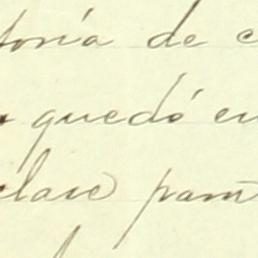 toria de c
quedó en
clase para